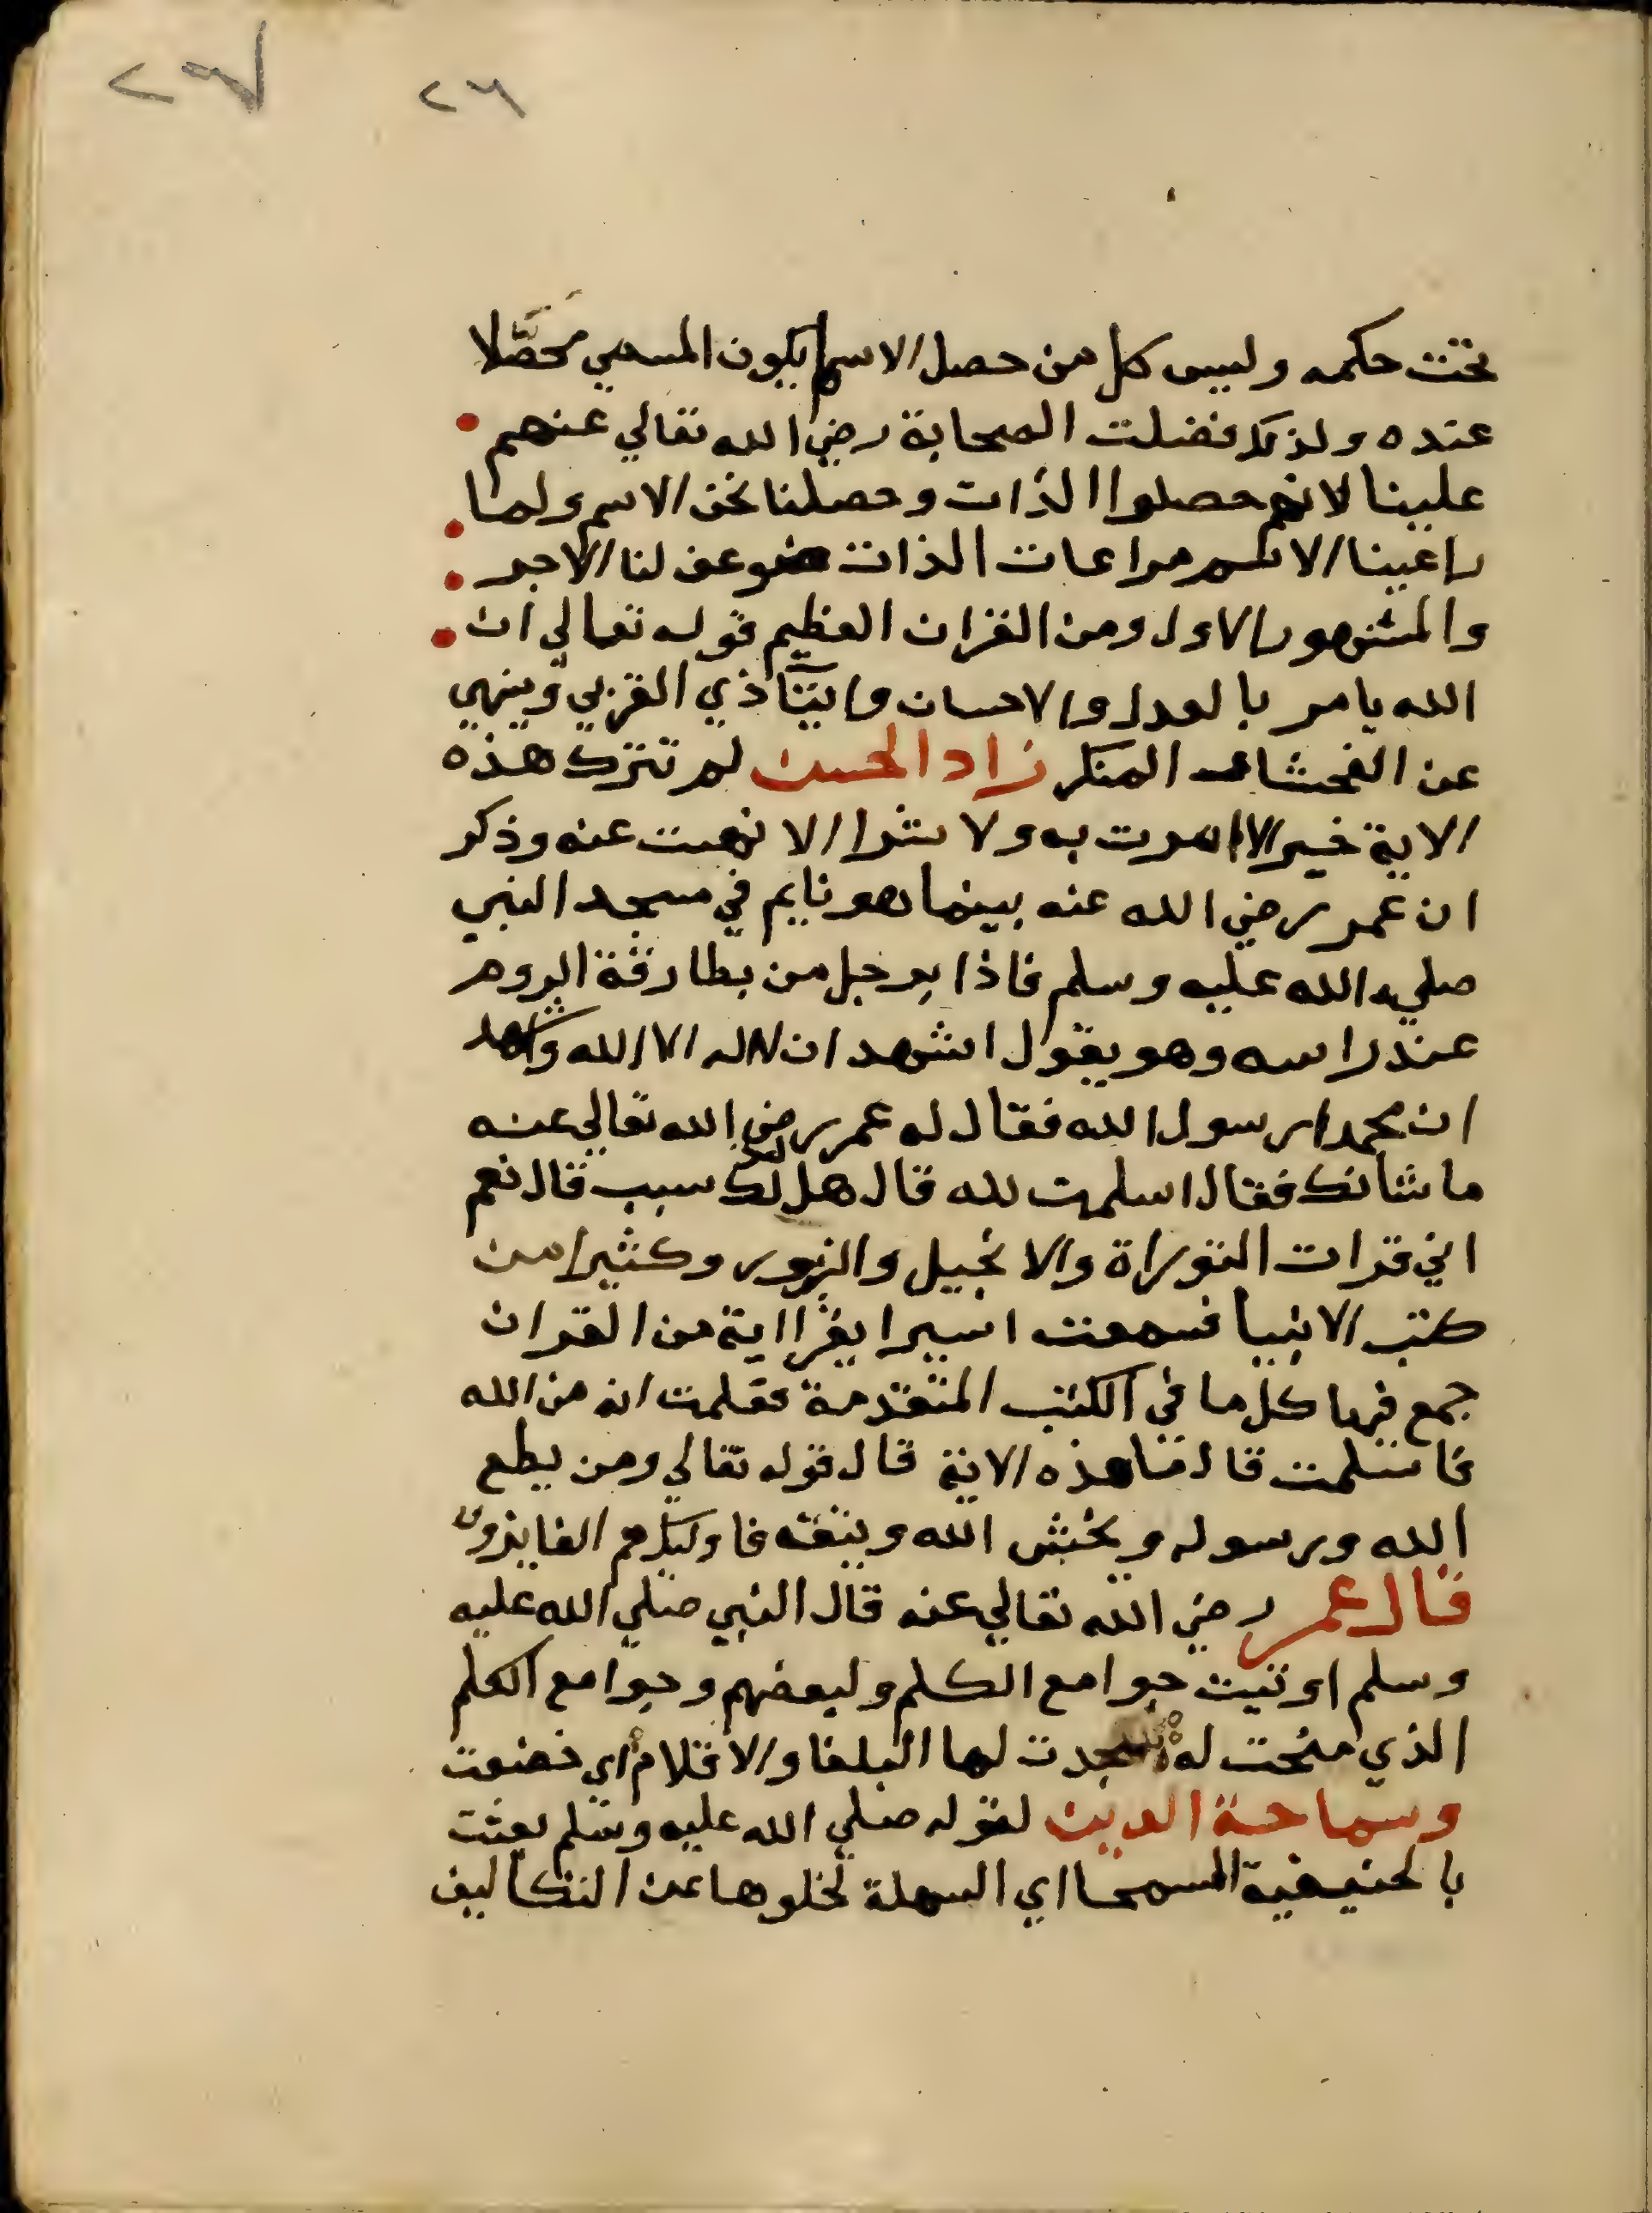 ٢٦ ٢٧
تحت حكمه وليس كل من حصل الاسم يكون المسمي محصّلا
عنده ولذلك فضلت الصحابة رضي الله تعالي عنهم
علينا لانهم حصلوا الذات وحصلنا نحن الاسم ولما
راعينا الاسم مراعات الذات ضوعف لنا الاجر
والمشهور الاول ومن القران العظيم قوله تعالي ان
الله يامر بالعدل والاحسان وايتآ ذي القربي وينهي
عن الفحشا والمنكر زاد الحسن لم تترك هذه
الاية خيرا الا امرت به ولا شرا الا نهت عنه وذكر
ان عمر رضي الله عنه بينما هو نايم في مسجد النبي
صلي الله عليه وسلم فاذا برجل من بطارقة الروم
عند راسه وهو يقول اشهد ان لا اله الا الله واشهد
ان محمدا رسول الله فقال له عمر رضي الله تعالي عنه
ما شانك فقال اسلمت لله قال هل لك سبب قال نعم
اني قرات التوراة والانجيل والزبور وكثيرا من
كتب الانبيا فسمعت اسيرا يقرا اية من القران
جمع فيها كل ما في الكتب المتقدمة فعلمت انه من الله
فاسلمت قال فما هذه الاية قال قوله تعالي ومن يطع
الله ورسوله ويخش الله ويتقه فاوليك هم الفايزون
قال عمر رضي الله تعالي عنه قال النبي صلي الله عليه
وسلم اوتيت جوامع الكلم ولبعضهم وجوامع الكلم
الذي منحت له سجدت لها البلغا والاقلام اي خضعت
وسماحة الدين لقوله صلي الله عليه وسلم بعثت
بالحنيفية السمحا اي السهلة لخلوها عن التكاليف